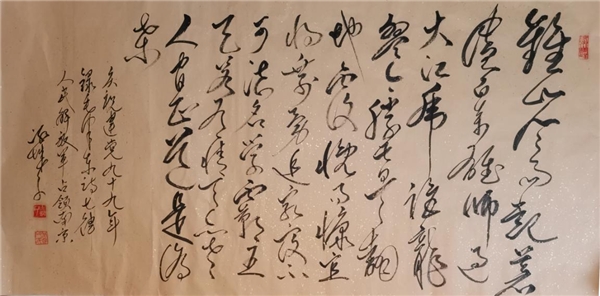 鍾山风雨起蒼
黄百萬雄師过
大江虎踞龍
盤今勝昔天翻
地覆慨而慷宜
将剩勇追穷寇不
可沽名学霸王
天若有情天亦老
人间正道是滄
桑
庆祝建党九十九年
錄毛泽东诗七律
人民解放军占领南京